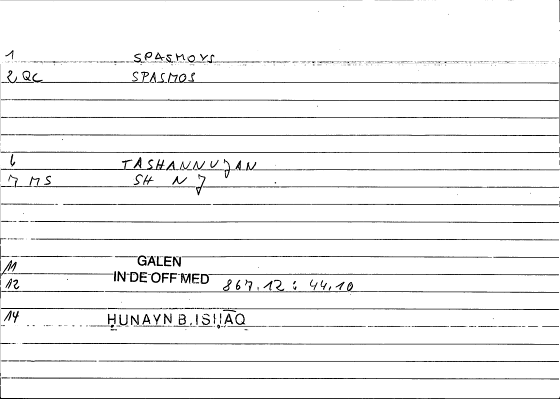 1 SPASMOYS
2 QC SPASMOS
6 TASHANNUJAN
7 MS SH N J
11 GALEN
IN DE OFF MED
12 867.12 : 44.10
14 ḤUNAYN B. ISḤĀQ